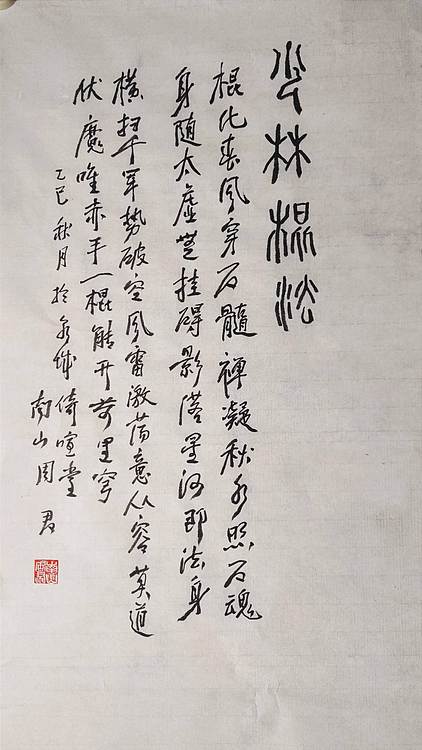 少林棍法
棍化春风穿石髓禅凝秋水照石魂
身随太虚無挂碍影落星河即法身
横扫千军势破空风雷激荡意从容莫道
伏魔唯赤手一棍能开萬里穹
乙巳秋月於泉城倚喧堂
南山周君